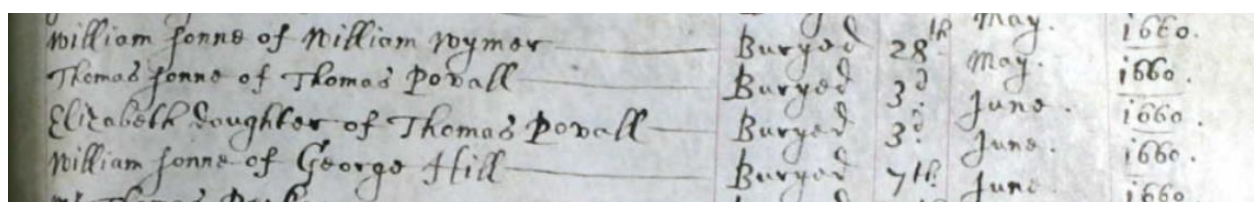 May. 1660.
William sonne of William Wymer Buryed 28th May. 1660.
Thomas sonne of Thomas Povall Buryed 3d June. 1660.
Elizabeth daughter of Thomas Povall Buryed 3d June. 1660.
William sonne of George Hill Buryed 7th June 1660
Thomas